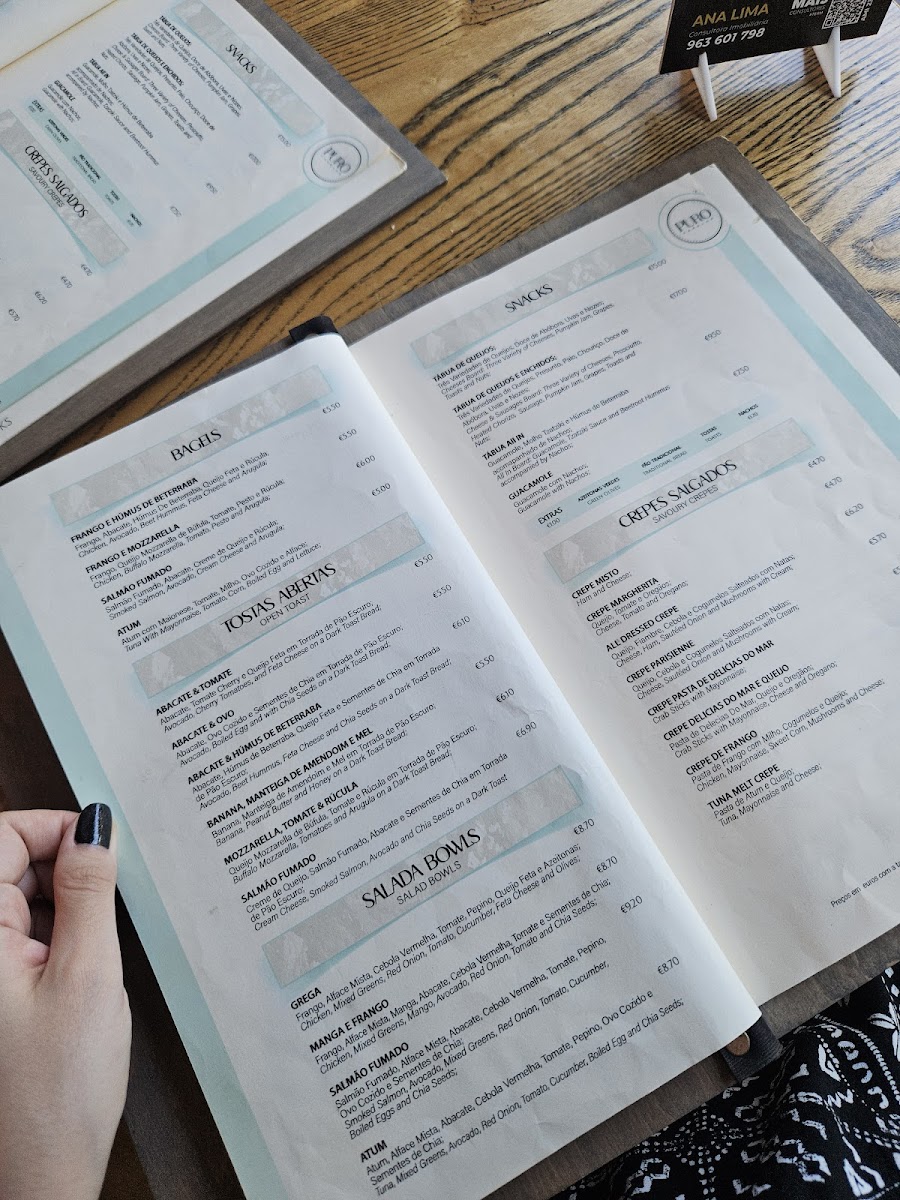 ANA LIMA
Consultora Imobiliária
963 601 798
MAIS
SNACKS
TÁBUA DE QUEIJOS:
TÁBUA DE QUEIJOS E ENCHIDOS:
TÁBUA All IN
GUACAMOLE
Guacamole com Nachos;
Guacamole with Nachos;
CREPES SALGADOS
SAVOURY CREPES
PURO
BAGELS
FRANGO E HÚMUS DE BETERRABA €5.50
Frango, Abacate, Húmus De Beterraba, Queijo Feta e Rúcula;
Chicken, Avocado, Beet Hummus, Feta Cheese and Arugula;
FRANGO E MOZZARELLA €5.50
Frango, Queijo Mozzarella de Búfula, Tomate, Pesto e Rúcula;
Chicken, Buffalo Mozzarella, Tomato, Pesto and Arugula;
SALMÃO FUMADO €6.00
Salmão Fumado, Abacate, Creme de Queijo e Rúcula;
Smoked Salmon, Avocado, Cream Cheese and Arugula;
ATUM €5.00
Atum com Maionese, Tomate, Milho, Ovo Cozido e Alface;
Tuna With Mayonnaise, Tomato, Corn, Boiled Egg and Lettuce;
TOSTAS ABERTAS
OPEN TOAST
ABACATE & TOMATE €5.50
Abacate, Tomate Cherry e Queijo Feta em Torrada de Pão Escuro;
Avocado, Cherry Tomatoes, and Feta Cheese on a Dark Toast Bread;
ABACATE & OVO €5.50
Abacate, Ovo Cozido e Sementes de Chia em Torrada de Pão Escuro;
Avocado, Boiled Egg and with Chia Seeds on a Dark Toast Bread;
ABACATE & HÚMUS DE BETERRABA €6.10
Abacate, Húmus de Beterraba, Queijo Feta e Sementes de Chia em Torrada
de Pão Escuro;
Avocado, Beet Hummus, Feta Cheese and Chia Seeds on a Dark Toast Bread;
BANANA, MANTEIGA DE AMENDOIM E MEL €5.50
Banana, Manteiga de Amendoim e Mel em Torrada de Pão Escuro;
Banana, Peanut Butter and Honey on a Dark Toast Bread;
MOZZARELLA, TOMATE & RÚCULA €6.10
Queijo Mozzarella de Búfula, Tomate e Rúcula em Torrada de Pão Escuro;
Buffalo Mozzarella, Tomatoes and Arugula on a Dark Toast Bread;
SALMÃO FUMADO €6.90
Creme de Queijo, Salmão Fumado, Abacate e Sementes de Chia em Torrada
de Pão Escuro;
Cream Cheese, Smoked Salmon, Avocado and Chia Seeds on a Dark Toast
Bread;
SALADA BOWLS
SALAD BOWLS
GREGA €8.70
Frango, Alface Mista, Cebola Vermelha, Tomate, Pepino, Queijo Feta e Azeitonas;
Chicken, Mixed Greens, Red Onion, Tomato, Cucumber, Feta Cheese and Olives;
MANGA E FRANGO €8.70
Frango, Alface Mista, Manga, Abacate, Cebola Vermelha, Tomate e Sementes de Chia;
Chicken, Mixed Greens, Mango, Avocado, Red Onion, Tomato and Chia Seeds;
SALMÃO FUMADO €9.20
Salmão Fumado, Alface Mista, Abacate, Cebola Vermelha, Tomate, Pepino,
Ovo Cozido e Sementes de Chia;
Smoked Salmon, Avocado, Mixed Greens, Red Onion, Tomato, Cucumber,
Boiled Eggs and Chia Seeds;
ATUM €8.70
Atum, Alface Mista, Abacate, Cebola Vermelha, Tomate, Pepino, Ovo Cozido e
Sementes de Chia;
Tuna, Mixed Greens, Avocado, Red Onion, Tomato, Cucumber, Boiled Egg and Chia Seeds;
PURO
SNACKS
TÁBUA DE QUEIJOS: €15.00
Três Variedades de Queijos, Doce de Abóbora, Uvas e Nozes;
Cheeses Board: Three Variety of Cheeses, Pumpkin Jam, Grapes,
Toasts and Nuts;
TÁBUA DE QUEIJOS E ENCHIDOS: €17.00
Três Variedades de Queijos, Presunto, Paio, Chouriço, Doce de
Abóbora, Uvas e Nozes;
Cheese & Sausages Board: Three Variety of Cheeses, Prosciutto,
Heated Chorizo, Sausage, Pumpkin Jam, Grapes, Toasts and
Nuts;
TÁBUA All IN €9.50
Guacamole, Molho Tzatziki e Húmus de Beterraba
acompanhado de Nachos;
All In Board: Guacamole, Tzatziki Sauce and Beetroot Hummus
accompanied by Nachos;
GUACAMOLE €7.50
Guacamole com Nachos;
Guacamole with Nachos;
EXTRAS AZEITONAS VERDES PÃO TRADICIONAL TOSTAS NACHOS
€1.00 GREEN OLIVES TRADITIONAL BREAD TOASTS
CREPES SALGADOS
SAVOURY CREPES
CREPE MISTO €4.70
Ham and Cheese;
CREPE MARGHERITA €4.70
Queijo, Tomate e Oregãos;
Cheese, Tomato and Oregano;
ALL DRESSED CREPE €6.20
Queijo, Fiambre, Cebola e Cogumelos Salteados com Natas;
Cheese, Ham, Sautéed Onion and Mushrooms with Cream;
CREPE PARISIENNE €5.70
Queijo, Cebola e Cogumelos Salteados com Natas;
Cheese, Sautéed Onion and Mushrooms with Cream;
CREPE PASTA DE DELICIAS DO MAR
Crab Sticks with Mayonnaise;
CREPE DELICIAS DO MAR E QUEIJO
Pasta de Delicias Do Mar, Queijo e Oregãos;
Crab Sticks with Mayonnaise, Cheese and Oregano;
CREPE DE FRANGO
Pasta de Frango com Milho, Cogumelos e Queijo;
Chicken, Mayonnaise, Sweet Corn, Mushrooms and Cheese;
TUNA MELT CREPE
Pasta de Atum e Queijo;
Tuna, Mayonnaise and Cheese;
Preços em euros com a